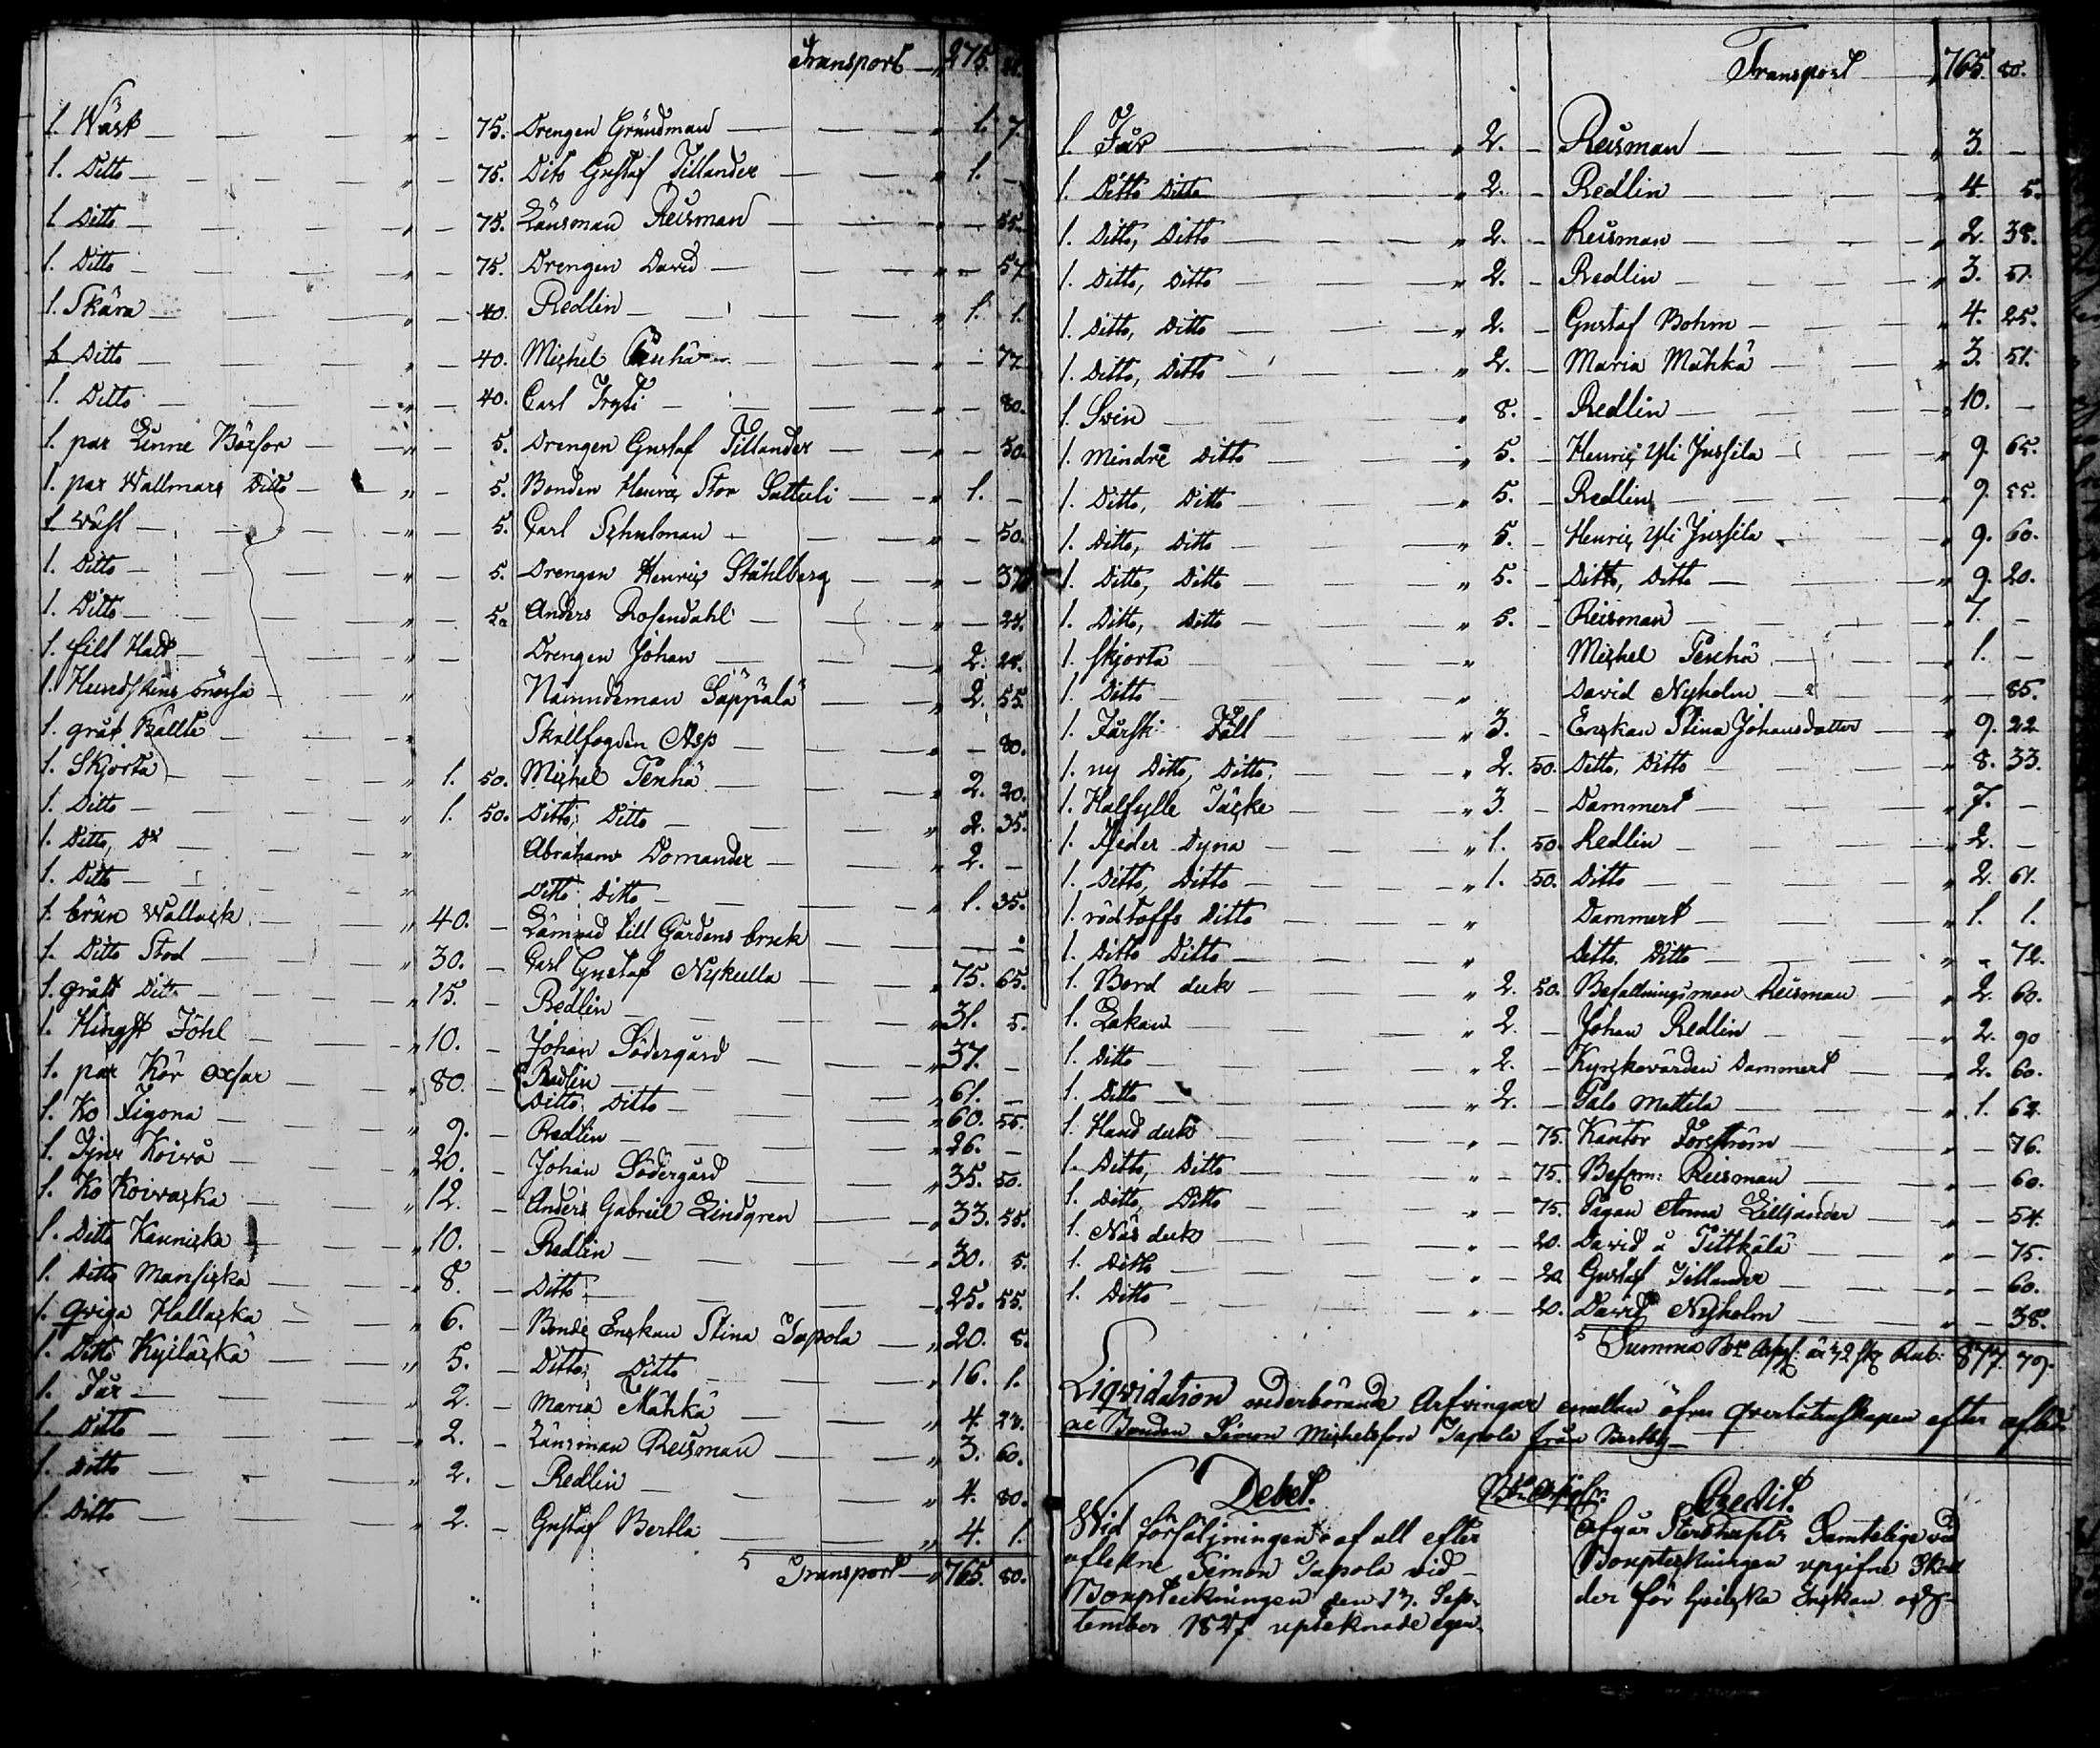 Transport — 275.
1. Wäst — 75. Drengen Grundman — 1. 7.
1. Ditto — 75. Dito Gustaf Tillander — 1. —
1. Ditto — 75. Länsman Reisman — 55.
1. Ditto — 75. Drengen David — 57.
1. Skära — 40. Redlin — 1. 1.
1. Ditto — 40. Michel — 77.
1. Ditto — 40. Carl — 80.
1. par Linne Böxsor — 5. Drengen Gustaf Tillander — 50.
1. par Wallmars Ditto — 5. Bonden Henric Stor — 1. —
1. — 5. Carl Schulman — 50.
1. Ditto — 5. Drengen Henric Ståhlberg — 37.
1. Ditto — 5. Anders Rosendahl —
1. filt Hatt — Drengen Johan — 2.
1. Hundskins mössa — Nämndeman Säppälä — 2. 55.
1. grått Bällte — Skallfogden Asp — 80.
1. Skjorta — 1. 50. Michel Tenhä — 2. 20.
1. Ditto — 1. 50. Ditto, Ditto — 2. 35.
1. Ditto, Do — Abraham Domander — 2. —
1. Ditto — Ditto Ditto — 1. 35.
1. brun Wallack — 40. — Lämnad till Gårdens bruk —
1. Ditto Stod — 30. — Carl Gustaf Nykulla — 75. 65.
1. grått Ditto — 15. — Redlin — 31. 5.
1. Hingst Föhl — 10. — Johan Södergård — 37. —
1. par Kör oxar — 80. — Redlin — 61. —
Ditto Ditto — 60. 55.
1. Ko — 9. — Redlin — 26. —
1. — 20. — Johan Södergård — 35. 50.
1. Ko Koivacka — 12. — Anders Gabriel Lindgren — 33. 55.
1. Ditto Kaunicka — 10. — Redlin — 30. 5.
1. Ditto Mansicka — 8. — Ditto — 25. 55.
1. Qviga Hallacka — 6. — Bonde Enckan Stina Tapola — 20. 8.
1. Ditto Kyiläckä — 5. — Ditto, Ditto — 16. 1.
1. Får — 2. — Maria Mähkä — 4.
1. Ditto — 2. — Länsman Reisman — 3. 60.
1. Ditto — 2. — Redlin — 4. 80.
1. Ditto — 2. — Gustaf Bertla — 4. 1.
Transport — 765. 80.
Transport — 765. 80.
1. Får — 2. — Reisman — 3. —
1. Ditto Ditto — 2. — Redlin — 4. 5.
1. Ditto, Ditto — 2. — Reisman — 2. 38.
1. Ditto, Ditto — 2. — Redlin — 3. 51.
1. Ditto, Ditto — 2. — Gustaf Bohm — 4. 25.
1. Ditto, Ditto — 2. — Maria Mähkä — 3. 51.
1. Svin — 8. — Redlin — 10. —
1. mindre Ditto — 5. — Henric Yli Jussila — 9. 65.
1. Ditto, Ditto — 5. — Redlin — 9. 55.
1. Ditto, Ditto — 5. — Henric Yli Jussila — 9. 60.
1. Ditto, Ditto — 5. — Ditto, Ditto — 9. 20.
1. Ditto, Ditto — 5. — Reisman — 7. —
1. Skjorta — Michel Tenhä — 1. —
1. Ditto — David Nyholm — 85.
1. Fårsk: Fäll — 3. — Enckan Stina Johansdotter — 9. 22
1. ny Ditto, Ditto — 2. 50. Ditto, Ditto — 8. 33.
1. Halfylle Täcke — 3. — Dammert — 7. —
1. Fjeder Dyna — 1. 50. Redlin — 2. —
1. Ditto, Ditto — 1. 50. Ditto — 2. 61.
1. Ditto — Dammert — 1. 1.
1. Ditto Ditto — Ditto Ditto — 72.
1. Bord duk — 2. 50. Befallningsman Reisman — 2. 60.
1. Lakan — 2. — Johan Redlin — 2. 90
1. Ditto — 2. — Kyrckovärden Dammert — 2. 60.
1. Ditto — 2. — Palo Mattila — 1. 62.
1. Hand duk — 75. Kantor Forsström — 76.
1. Ditto, Ditto — 75. Befm: Reisman — 60.
1. Ditto, Ditto — 75. Pigan Anna Lilljander — 54.
1. Näs duk — 20. David å Pittkälä — 75.
1. Ditto — 20. Gustaf Tillander — 60.
1. Ditto — 20. David Nyholm — 38.
Summa Bco à 72 Rub: 877. 79.
Liqvidation wederbörande Arfvingar emellan öfver Qvarlåtenskapen efter afled-
ne Bonden Simon Michelsson Tapola från Bertby —
Debet. Credit.
Wid försäljningen af all efter
afledne Simon Tapola vid
Bouptekningen den 17. Sep-
tember 1827 uptecknade egen-
Afgår Sterbhusets Samtelige vid
Bouptekningen upgifne Skul-
der för hvilka Enckan